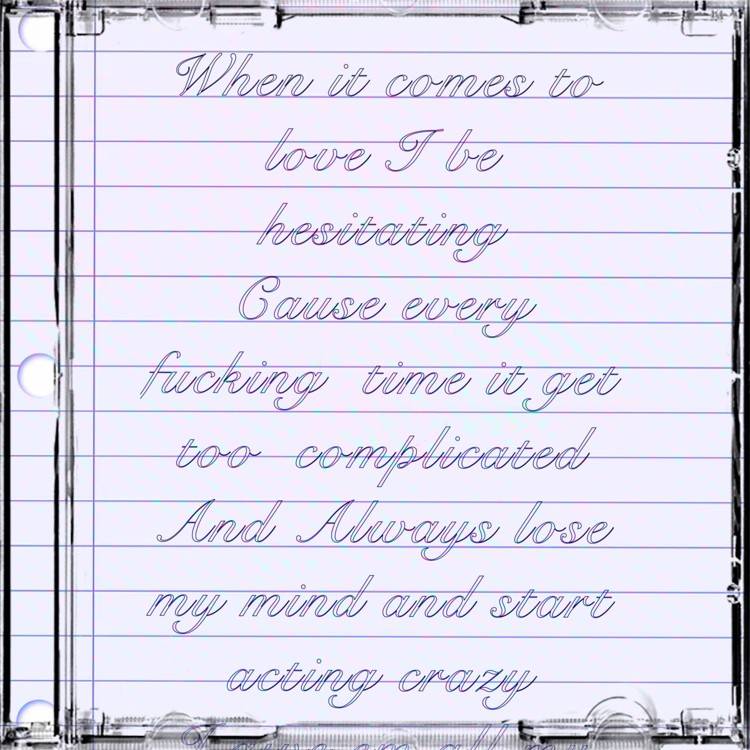 When it comes to
love I be
hesitating
Cause every
fucking time it get
too complicated
And Always lose
my mind and start
acting crazy